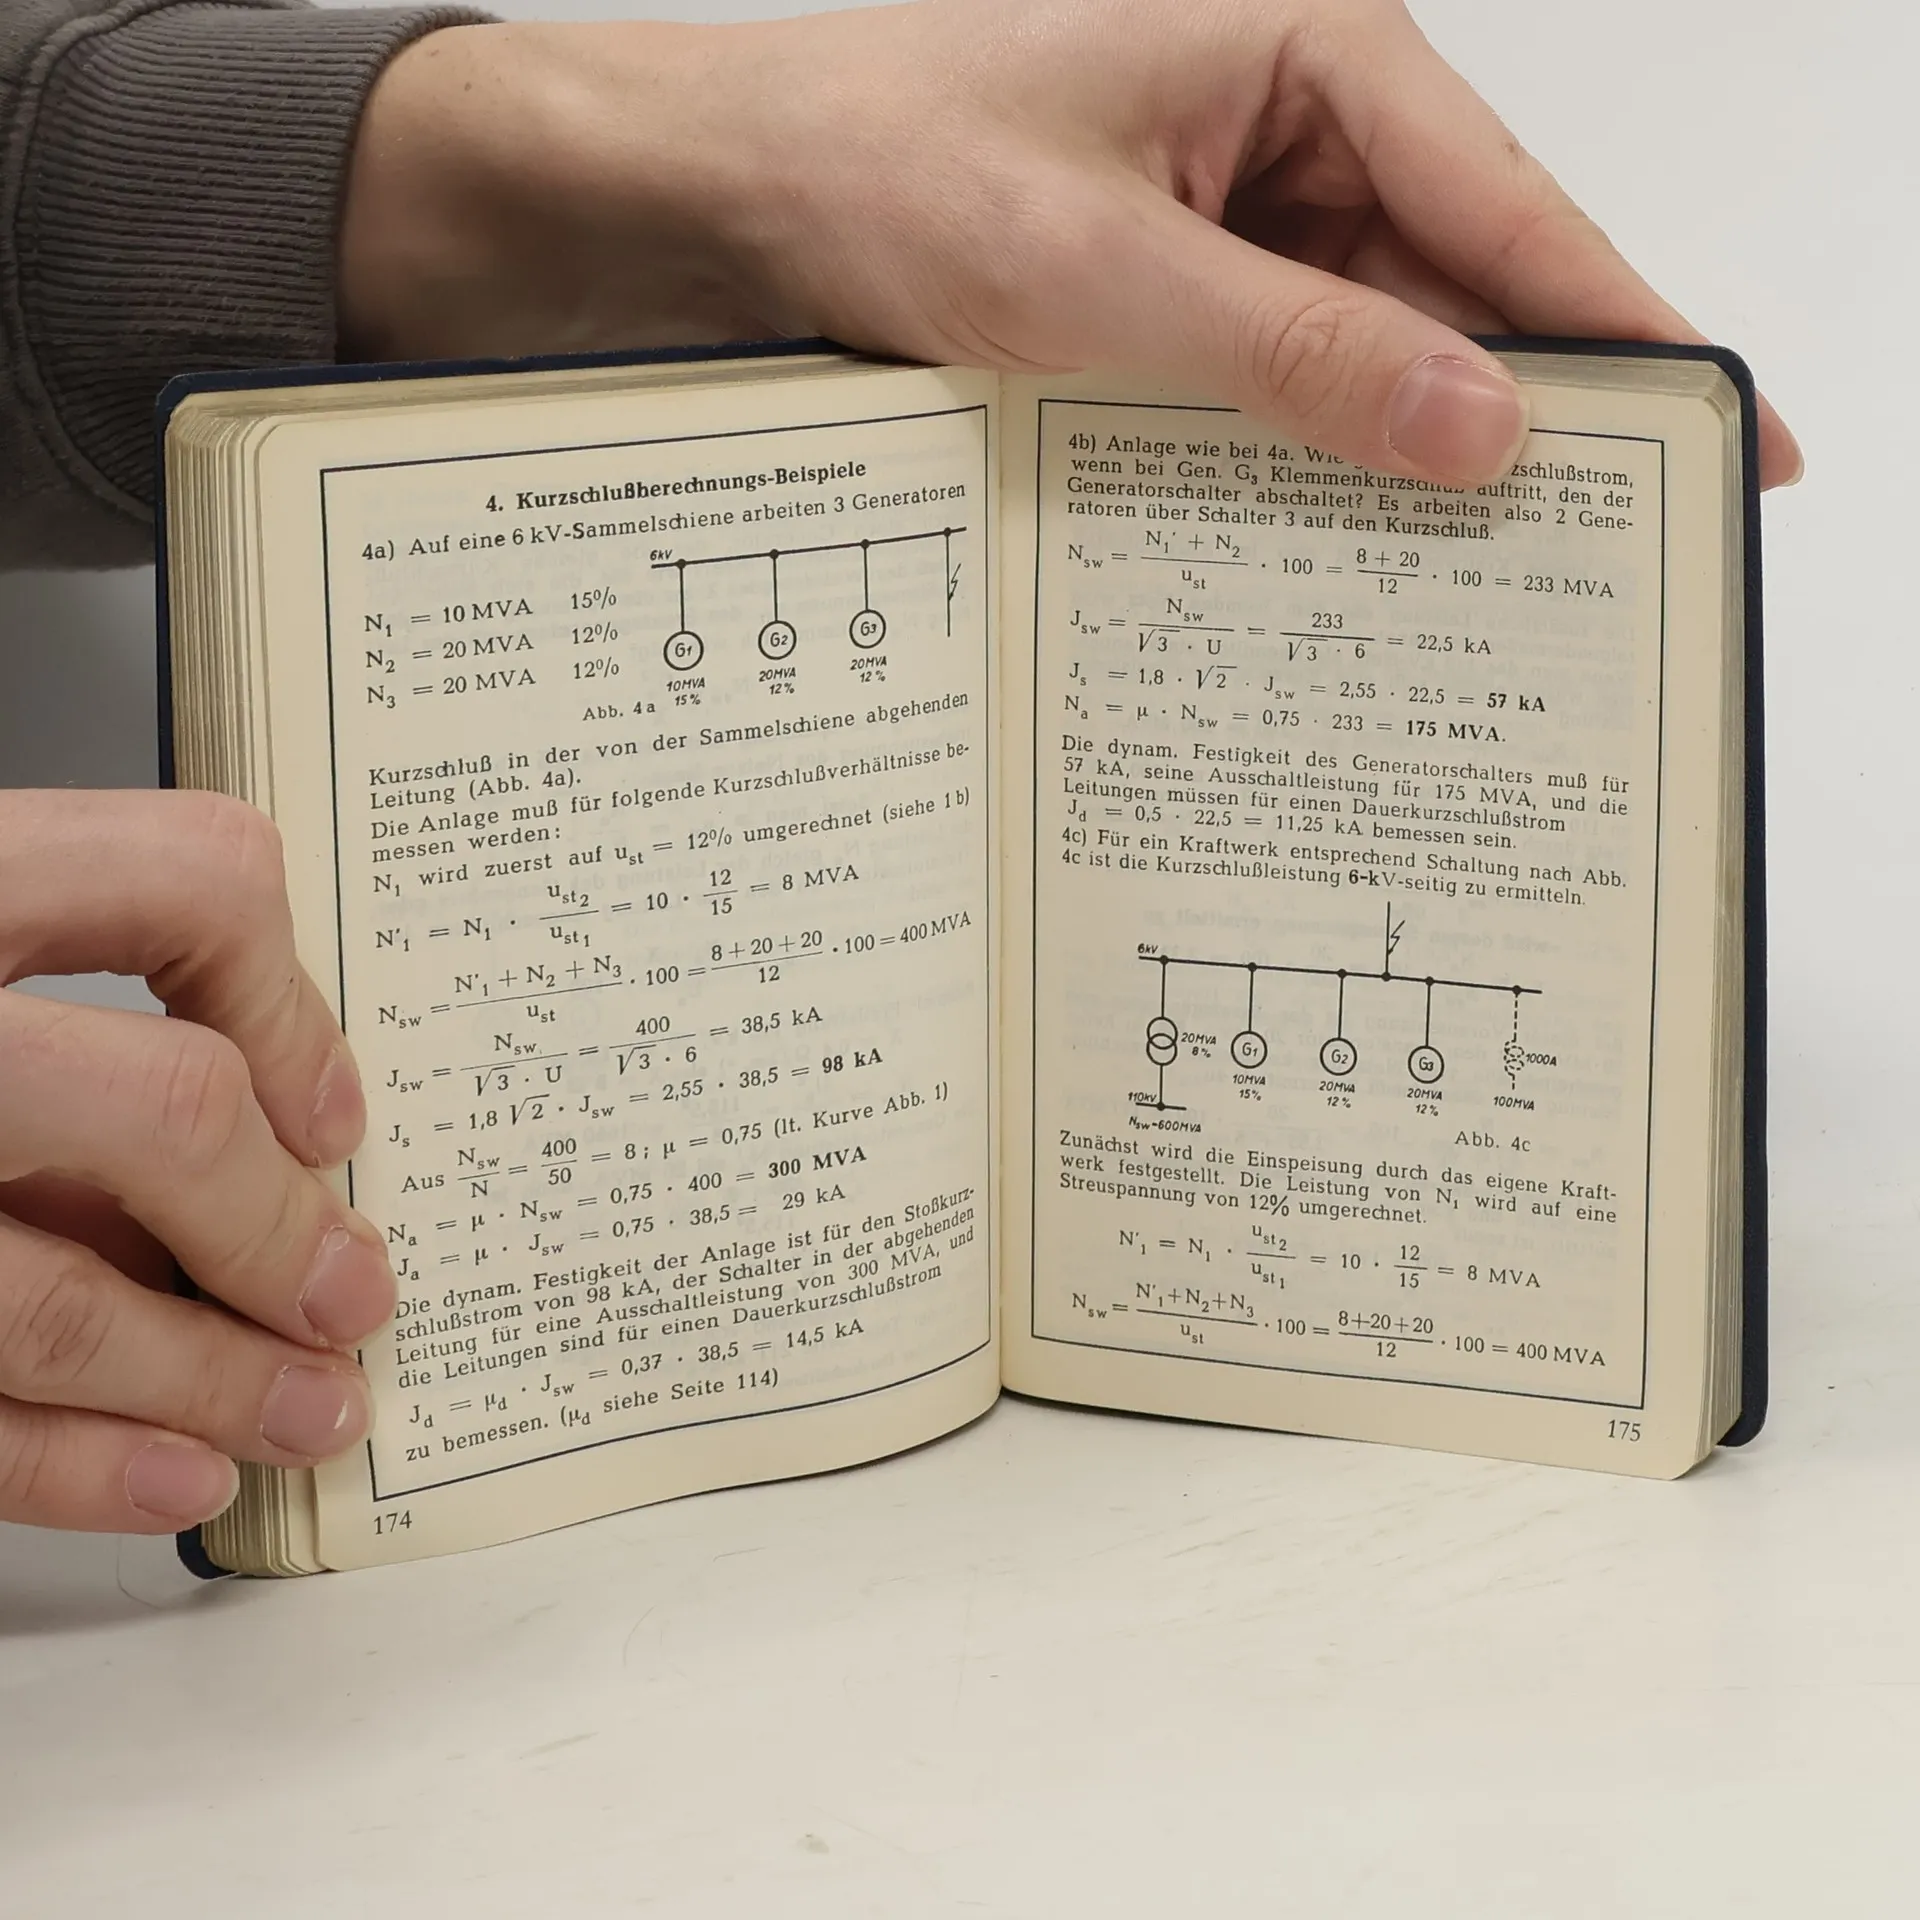 4. Kurzschlußberechnungs-Beispiele
4a) Auf eine 6 kV-Sammelschiene arbeiten 3 Generatoren
6kV
N₁ = 10 MVA 15%
N₂ = 20 MVA 12%
N₃ = 20 MVA 12%
G1 G2 G3
10MVA 20MVA 20MVA
15% 12% 12%
Abb. 4a
Kurzschluß in der von der Sammelschiene abgehenden
Leitung (Abb. 4a).
Die Anlage muß für folgende Kurzschlußverhältnisse be-
messen werden:
N₁ wird zuerst auf u_st = 12% umgerechnet (siehe 1b)
N'₁ = N₁ · u_st2 / u_st1 = 10 · 12/15 = 8 MVA
N_sw = (N'₁ + N₂ + N₃) / u_st · 100 = (8 + 20 + 20) / 12 · 100 = 400 MVA
J_sw = N_sw / (√3 · U) = 400 / (√3 · 6) = 38,5 kA
J_s = 1,8 √2 · J_sw = 2,55 · 38,5 = 98 kA
Aus N_sw / N = 400/50 = 8; μ = 0,75 (lt. Kurve Abb. 1)
N_a = μ · N_sw = 0,75 · 400 = 300 MVA
J_a = μ · J_sw = 0,75 · 38,5 = 29 kA
Die dynam. Festigkeit der Anlage ist für den Stoßkurz-
schlußstrom von 98 kA, der Schalter in der abgehenden
Leitung für eine Ausschaltleistung von 300 MVA, und
die Leitungen sind für einen Dauerkurzschlußstrom
J_d = μ_d · J_sw = 0,37 · 38,5 = 14,5 kA
zu bemessen. (μ_d siehe Seite 114)
174
4b) Anlage wie bei 4a. Wie zschlußstrom,
wenn bei Gen. G₃ Klemmenkurzschluß auftritt, den der
Generatorschalter abschaltet? Es arbeiten also 2 Gene-
ratoren über Schalter 3 auf den Kurzschluß.
N_sw = (N₁' + N₂) / u_st · 100 = (8 + 20) / 12 · 100 = 233 MVA
J_sw = N_sw / (√3 · U) = 233 / (√3 · 6) = 22,5 kA
J_s = 1,8 · √2 · J_sw = 2,55 · 22,5 = 57 kA
N_a = μ · N_sw = 0,75 · 233 = 175 MVA.
Die dynam. Festigkeit des Generatorschalters muß für
57 kA, seine Ausschaltleistung für 175 MVA, und die
Leitungen müssen für einen Dauerkurzschlußstrom
J_d = 0,5 · 22,5 = 11,25 kA bemessen sein.
4c) Für ein Kraftwerk entsprechend Schaltung nach Abb.
4c ist die Kurzschlußleistung 6-kV-seitig zu ermitteln.
6kV
20MVA G1 G2 G3 1000A
8% 10MVA 20MVA 20MVA 100MVA
15% 12% 12%
110kV
N_sw=600MVA
Abb. 4c
Zunächst wird die Einspeisung durch das eigene Kraft-
werk festgestellt. Die Leistung von N₁ wird auf eine
Streuspannung von 12% umgerechnet.
N'₁ = N₁ · u_st2 / u_st1 = 10 · 12/15 = 8 MVA
N_sw = (N'₁+N₂+N₃) / u_st · 100 = (8+20+20) / 12 · 100 = 400 MVA
175